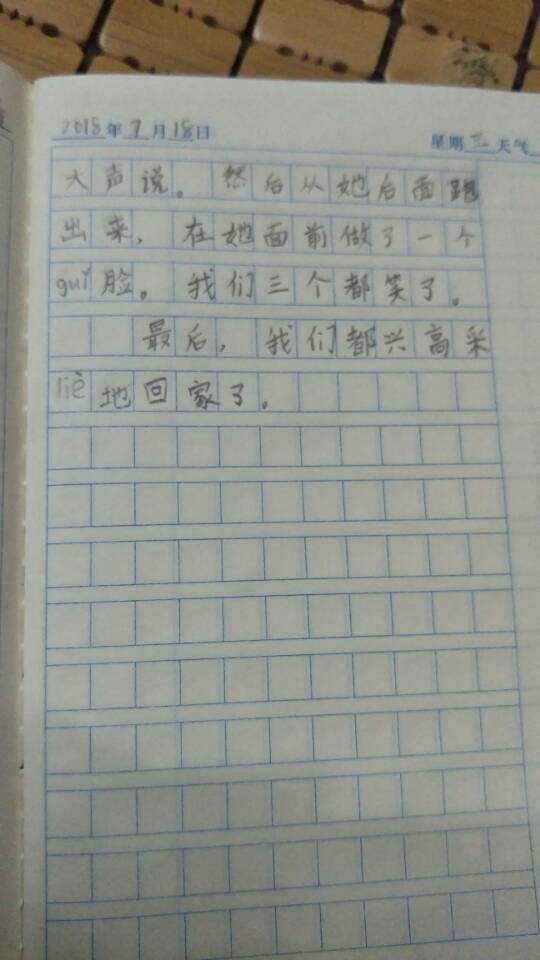 2018年7月18日 星期三 天气
大声说。然后从她后面跑
出来，在她面前做了一个
guǐ脸。我们三个都笑了。
最后，我们都兴高采
liè地回家了。